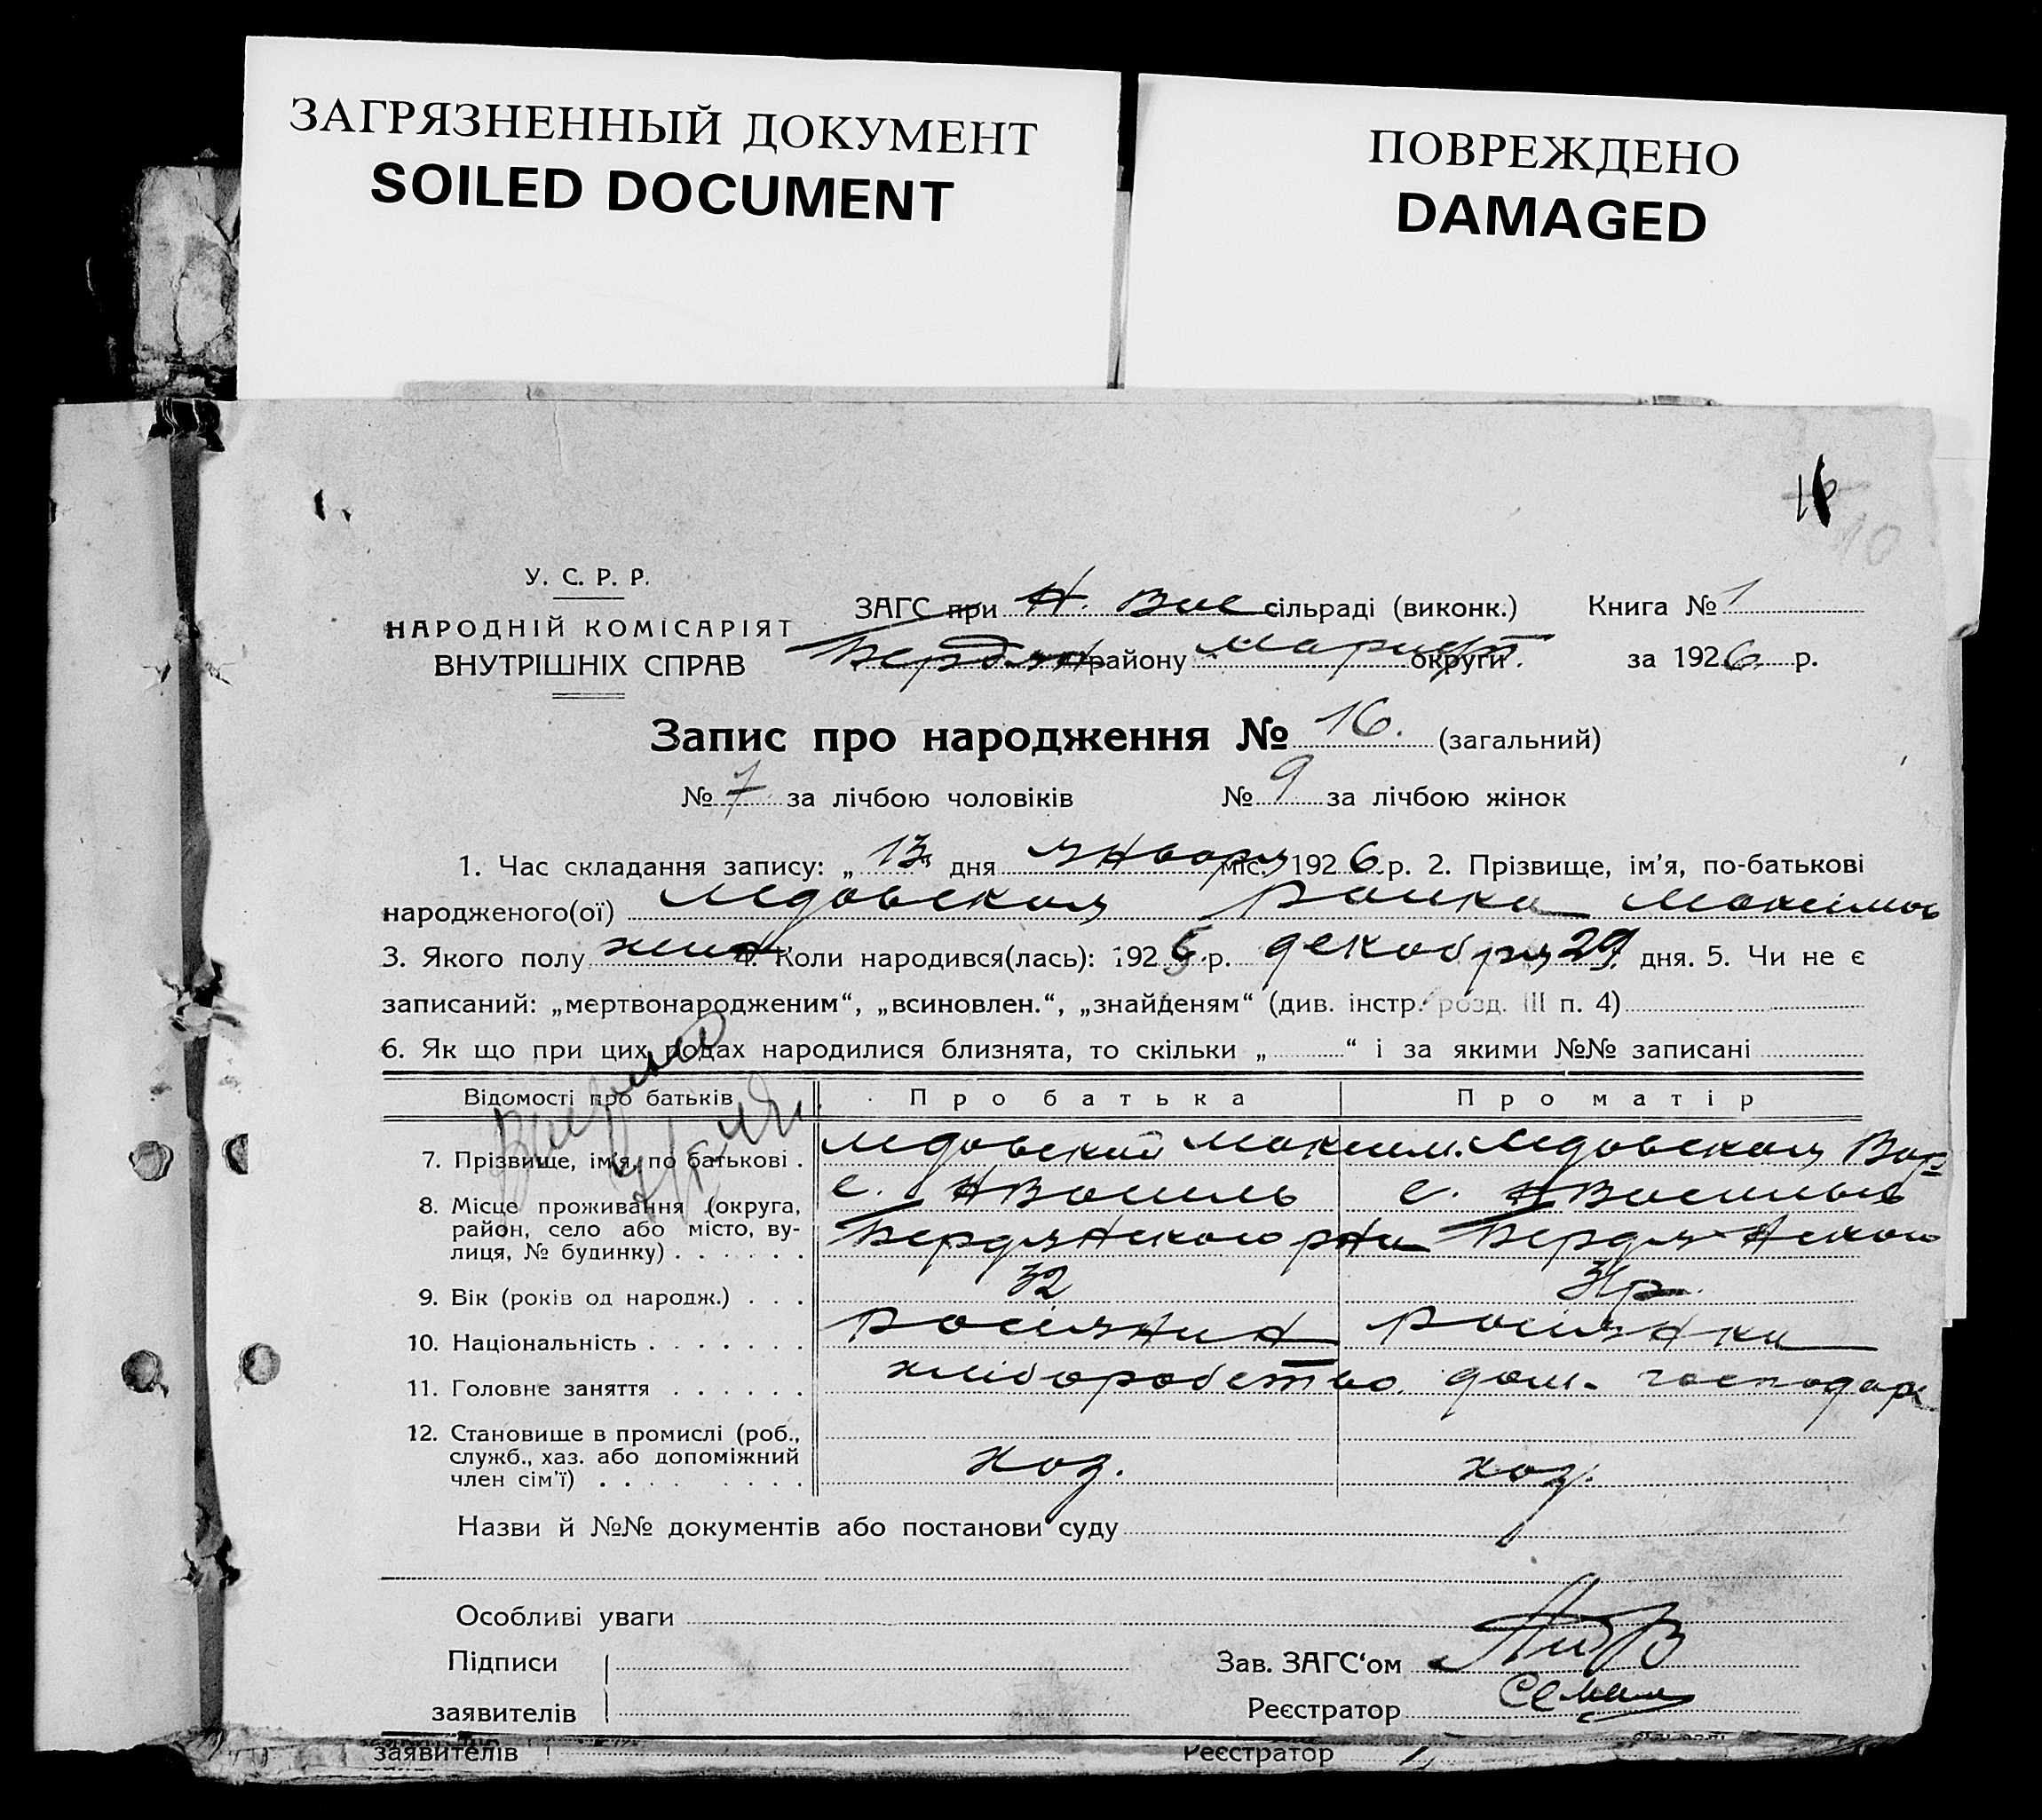 ЗАГРЯЗНЕННЫЙ ДОКУМЕНТ
SOILED DOCUMENT
ПОВРЕЖДЕНО
DAMAGED
10
У. С. Р. Р.
НАРОДНІЙ КОМІСАРІЯТ
ВНУТРІШНІХ СПРАВ
ЗАГС при Н. Вас сільраді (виконк.) Книга № 1
Бердян району Мариуп. округи за 1926 р.
Запис про народження № 16. (загальний)
№ 7 за лічбою чоловіків № 9 за лічбою жінок
1. Час складання запису: „13“ дня января міс. 1926 р. 2. Прізвище, ім’я, по-батькові
народженого(ої) Мдовская Максимов
3. Якого полу жін 4. Коли народився(лась): 1925 р. декабря 29 дня. 5. Чи не є
записаний: „мертвонародженим“, „всиновлен.“, „знайденям“ (див. інстр. розд. III п. 4)
6. Як що при цих родах народилися близнята, то скільки „ “ і за якими №№ записані
Відомості про батьків Про батька Про матір
7. Прізвище, ім’я, по батькові . Мдовский Максим. Мдовская Вар
8. Місце проживання (округа, с. НВасиль с. НВасильев
район, село або місто, ву-
лиця, № будинку) . . . . . . Бердянского рна Бердянского
9. Вік (років од народж.) . . . 32
10. Національність . . . . . . . росіянин росіянка
11. Головне заняття . . . . . . хліборобство дом. господар
12. Становище в промислі (роб.,
служб., хаз. або допоміжний хоз. хоз.
член сім’ї) . . . . . . . .
Назви й №№ документів або постанови суду
Особливі уваги
Підписи Зав. ЗАГС‘ом
заявителів Реєстратор
заявителів Реєстратор